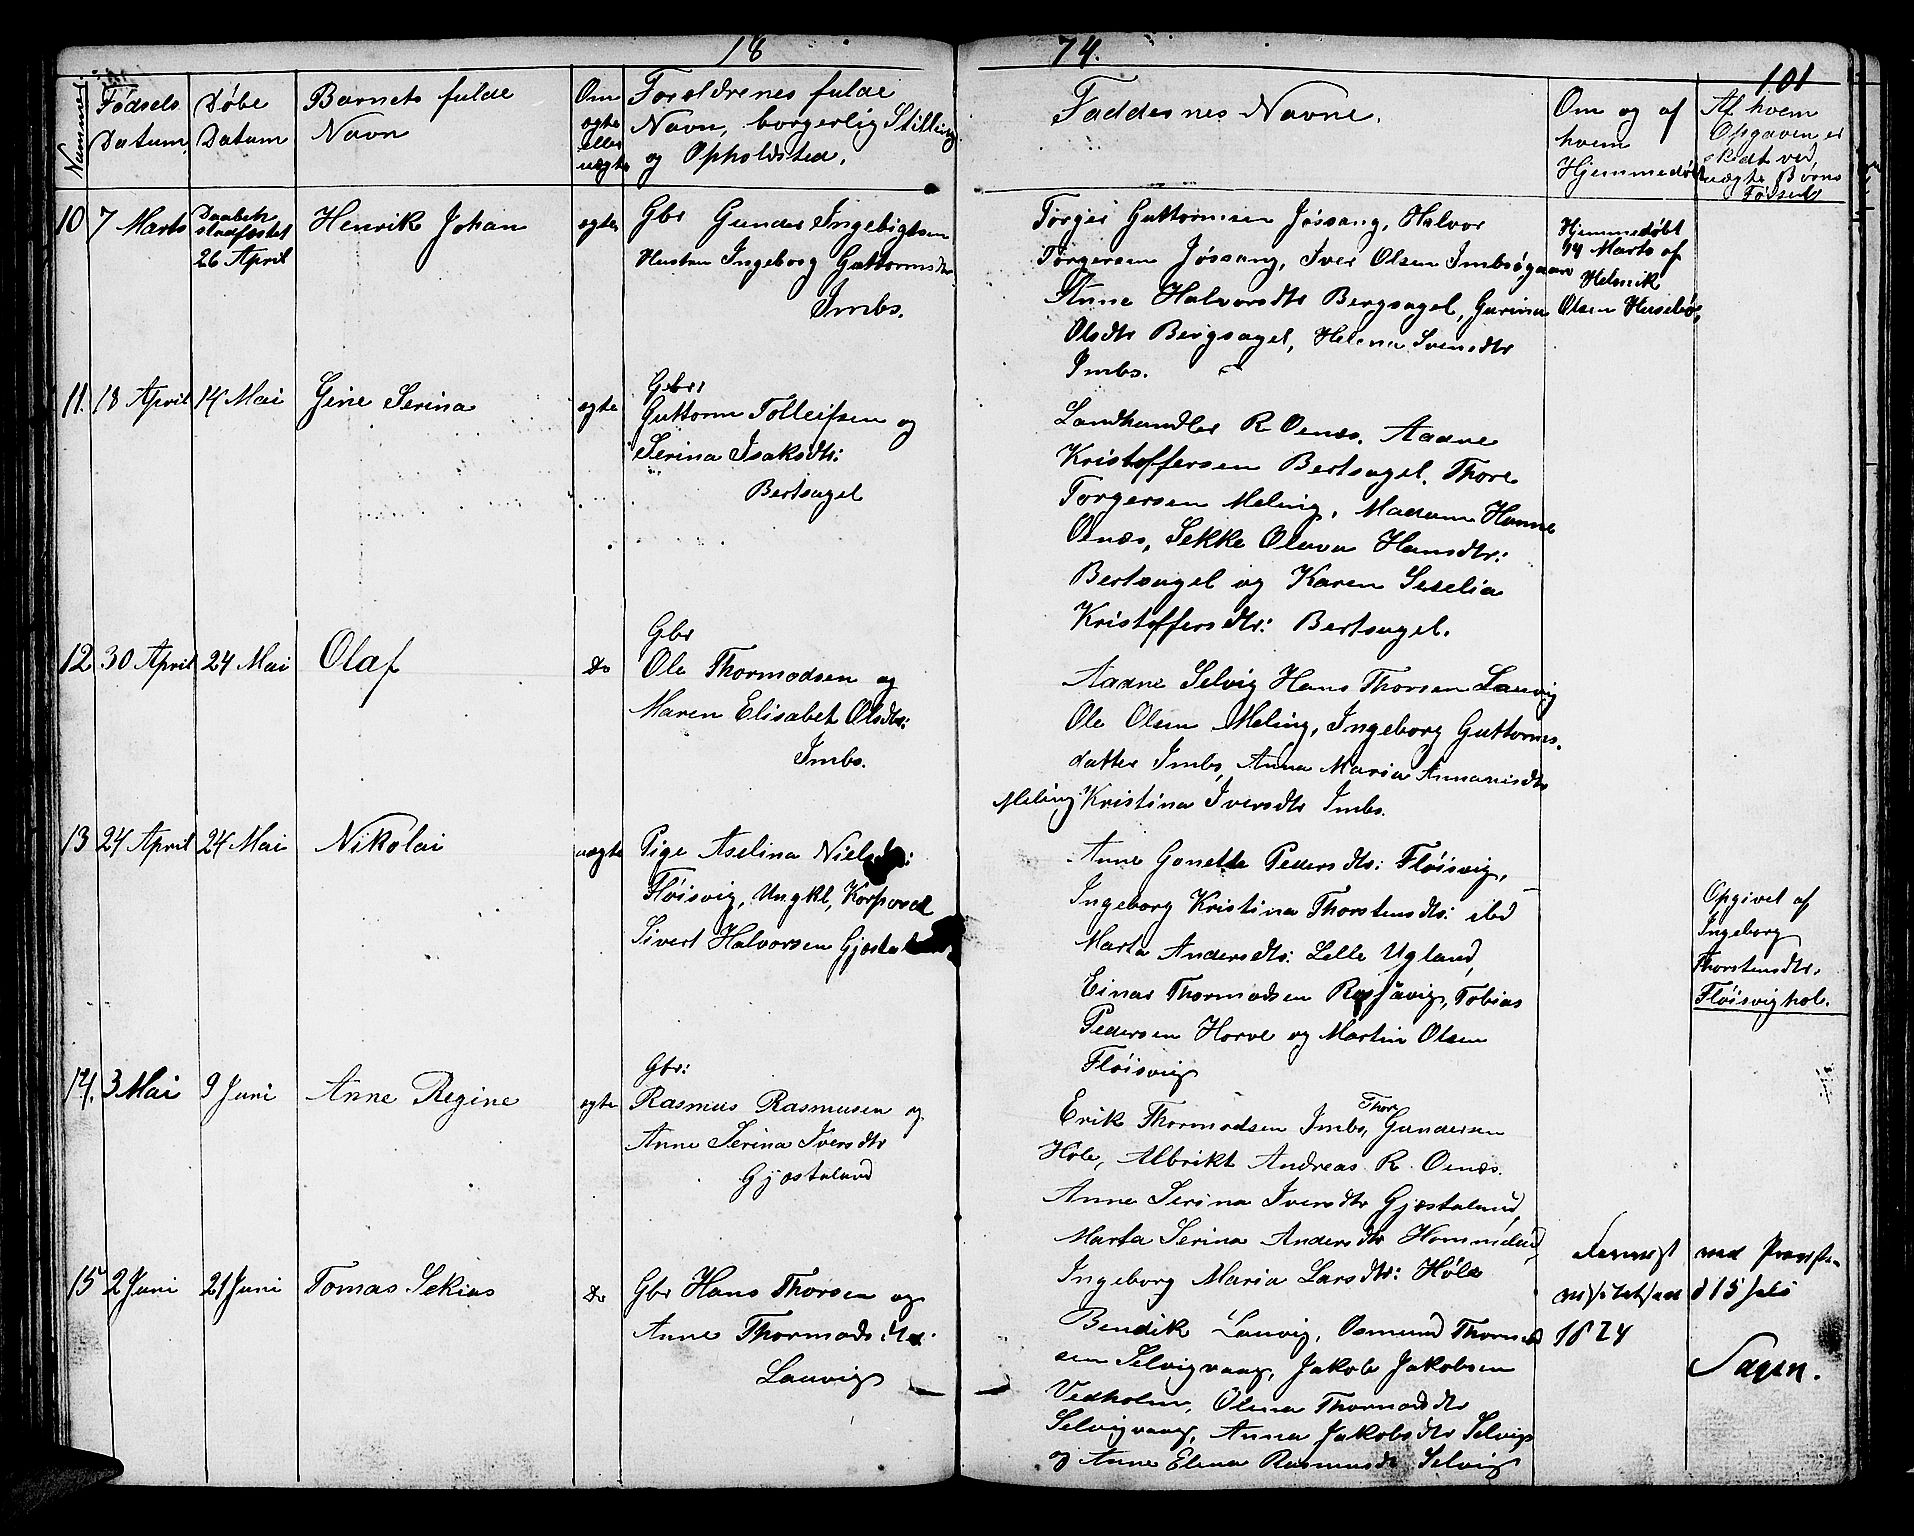 18 74.
101
Nummer
Fødsels Datum
Døbe Datum
Barnets fulde Navn
Om ægte eller uægte
Forældrenes fulde Navn, borgerlig Stilling og Opholdsted.
Faddernes Navne.
Om og af hvem Hjemmedøbt
Af hvem Opgaven er skedt ved uægte Børns Fødsel
10 7 Marts Daaben stadfæstet 26 April Henrik Johan ægte
Gbr Gunder Ingebrigtsen
Hustru Ingeborg Guttormsdtr
Imbs.
Torger Guttormsen Jøssang, Halvor
Torgersen Jøssang, Iver Olsen Imbsøgaar
Anne Halvorsdtr Bergsagel, Gurina
Olsdtr Bergsagel, Helena Svensdtr
Imbs.
Hjemmedøbt
14 Marts af
Helmik
Olsen Hersebø,
11. 18 April 14 Mai Gine Serina ægte
Gbr:
Guttorm Tolleifsen og
Serina Isaksdtr:
Bertsagel
Landhandler R Oenæs. Aadne
Kristoffersen Bertsagel. Thore
Torgersen Meling, Madam Hanne
Oenæs, Sekke Olava Hansdtr:
Bertsagel og Karen Seselia
Kristoffersdtr: Bertsagel.
12 30 April 24 Mai Olaf do
Gbr
Ole Thormodsen og
Maren Elisabet Olsdtr:
Imbs.
Aadne Selvig Hans Thorsen Lauvig
Ole Olsen Meling, Ingeborg Guttorms-
datter Imbs, Anna Maria Annanisdtr
Meling Kristina Iversdtr Imbs.
13 24 April 24 Mai Nikolai uægte
Pige Aselina Nielsdtr:
Fløisvig, Ungkl, Korporal
Sivert Halvorsen Gjesta
Anne Gonette Pedersdtr: Fløisvig,
Ingeborg Kristina Thorstensdtr: ibd
Marta Andersdtr: Lelle Ugland,
Einar Thormodsen Rossavig, Tobias
Pedersen Horve og Martin Olsen
Fløisvig
Opgivet af
Ingeborg
Thorstensdtr.
Fløisvighol.
14. 3 Mai 9 Juni Anne Regine ægte
Gbr:
Rasmus Rasmusen og
Anne Serina Iversdtr
Gjestaland
Erik Thormodsen Imbs, Thor Gundersen
Høle, Albrikt Andreas R. Oenæs.
Anne Serina Iversdtr Gjestaland,
Marta Serina Andersdtr Hommeland,
Ingeborg Maria Larsdtr: Høle
15 2 Juni 21 Juni Tomas Sekias do
Gbr Hans Thorsen og
Anne Thormodsdtr
Lauvig
Bendik Lauvig, Osmund Thormod
sen Selvigvaag, Jakob Jakobsen
Vedholm, Olena Thormoddtr
Selvigvaag, Anna Jakobsdtr Selvig
og Anne Elena Rasmusdtr Selvig
ved Provste-
visitatsen d 15 Juli
1874